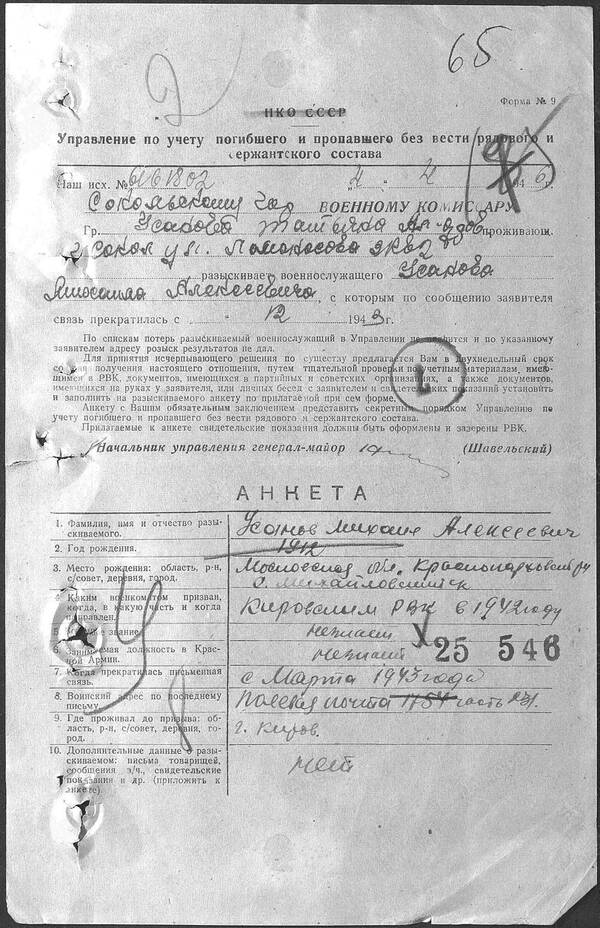 65
НКО СССР
Форма № 9
Управление по учету погибшего и пропавшего без вести рядового и
сержантского состава
Наш исх. № 4 4 194 6
Сокольскому Гор ВОЕННОМУ КОМИССАРУ
Гр. Усанова Татьяна проживающ.
г Сокол ул. Ломоносова
разыскивает военнослужащего Усанова
Михаила Алексеевича, с которым по сообщению заявителя
связь прекратилась с 12 1943г.
По спискам потерь разыскиваемый военнослужащий в Управлении не значится и по указанному
заявителем адресу розыск результатов не дал.
Для принятия исчерпывающего решения по существу предлагается Вам в двухнедельный срок
со дня получения настоящего отношения, путем тщательной проверки по учетным материалам, имею-
щимся в РВК, документов, имеющихся в партийных и советских организациях, а также документов,
имеющихся на руках у заявителя, или личных бесед с заявителем и свидетельских показаний установить
и заполнить на разыскиваемого анкету по прилагаемой при сем форме.
Анкету с Вашим обязательным заключением представить секретным порядком Управлению по
учету погибшего и пропавшего без вести рядового и сержантского состава.
Прилагаемые к анкете свидетельские показания должны быть оформлены и заверены РВК.
Начальник управления генерал-майор (Шавельский)
АНКЕТА
1. Фамилия, имя и отчество разы-
скиваемого.
Усанов Михаил Алексеевич
2. Год рождения.
1912
3. Место рождения: область, р-н,
с/совет, деревня, город.
Московская обл. Краснопахровский р-н
с. Михайловшинск
Каким военкоматом призван,
когда, в какую часть и когда
направлен.
Кировским РВК в 1942 году
5. звание.
неизвест
6. Занимаемая должность в Крас-
ной Армии.
неизвест
25 546
7. Когда прекратилась письменная
связь.
с Марта 1943 года
8. Воинский адрес по последнему
письму.
Полевая почта 1754 часть 231.
9. Где проживал до призыва: об-
ласть, р-н, с/совет, деревня, го-
род.
г. Киров.
10. Дополнительные данные о разы-
скиваемом: письма товарищей,
сообщения в/ч., свидетельские
показания и др. (приложить к
анкете).
нет